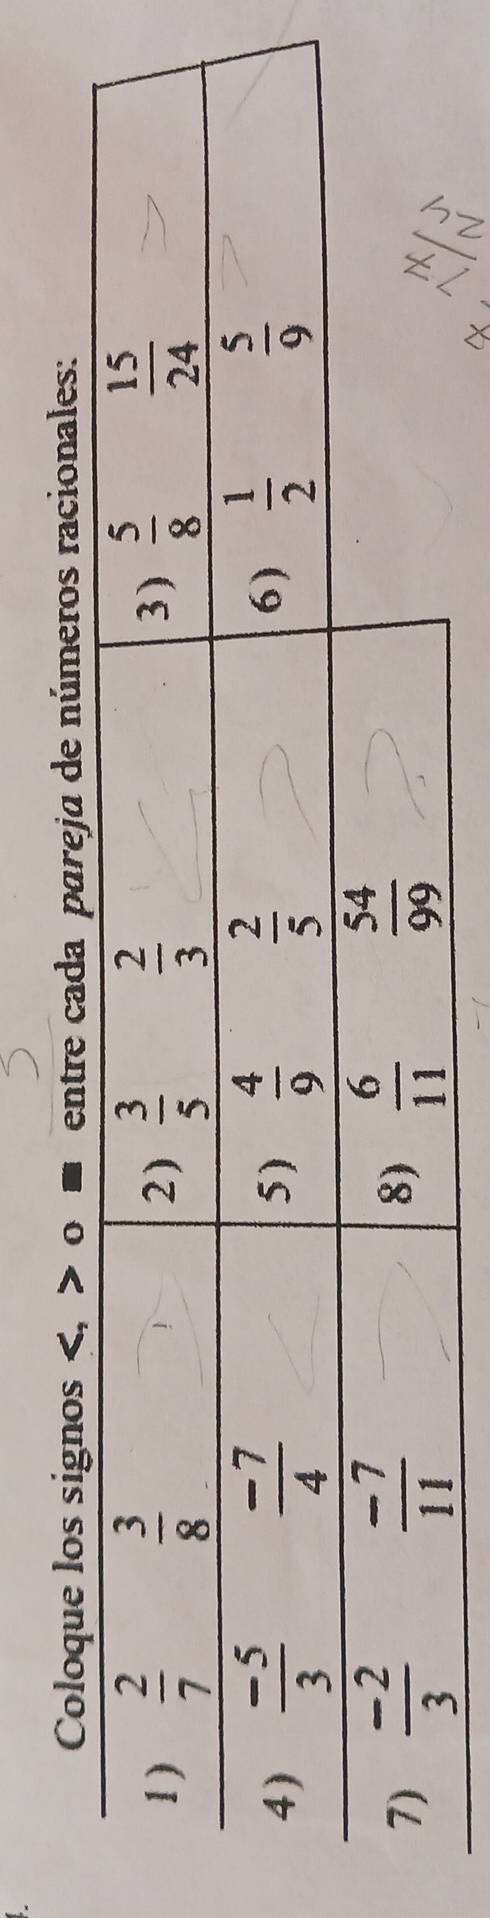 Coloque los signos <, > o = entre cada pareja de números racionales:
1) 2/7 3/8 2) 3/5 2/3 < 3) 5/8 15/24 >
4) -5/3 -7/4 < 5) 4/9 2/5 > 6) 1/2 5/9 >
7) -2/3 -7/11 > 8) 6/11 54/99 >